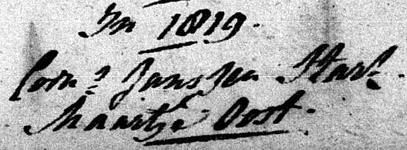 In 1819.
Corn.s Jansen Stark.
Maartje Oost.